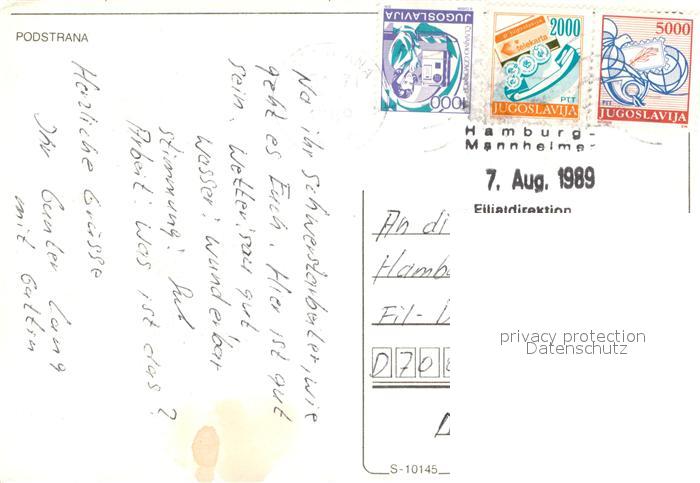 PODSTRANA
Na ihr Schwerstarbeiter, wie
geht es Euch. Hier ist gut
sein. Wetter: sau gut
Wasser: wunderbar
Stimmung: Gut
Arbeit: Was ist das?
Herzliche Grüsse
Ihr Günter Lang
mit Gattin
JUGOSLAVIJA
1000
2000
telekarta
PTT
JUGOSLAVIJA
5000
PTT
JUGOSLAVIJA
Hamburg-
Mannheimer
7. Aug. 1989
Filialdirektion
An di
Hamb
Fil-
D70
S-10145
privacy protection
Datenschutz